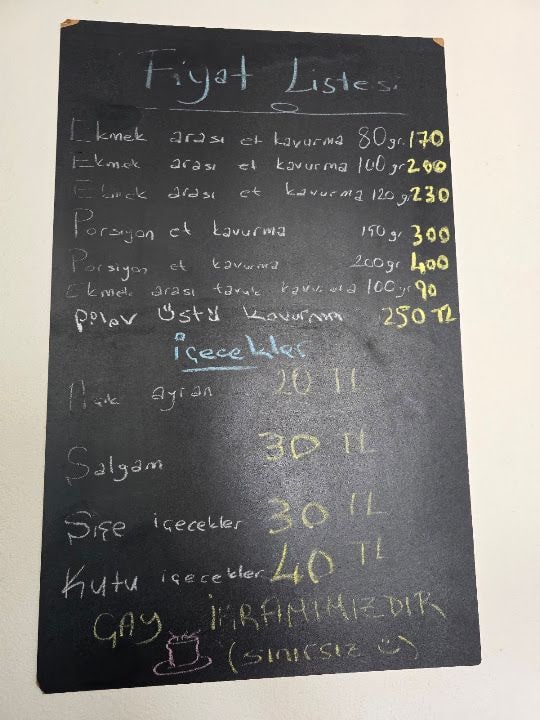 Fiyat Listesi
Ekmek arası et kavurma 80gr. 170
Ekmek arası et kavurma 100gr 200
Ekmek arası et kavurma 120gr 230
Porsiyon et kavurma 150gr 300
Porsiyon et kavurma 200gr. 400
Ekmek arası tavuk kavurma 100gr 90
Pilav üstü kavurma 250 TL
içecekler
Açık ayran 20 Tl
Şalgam 30 TL
Şişe içecekler 30 TL
Kutu içecekler 40 TL
ÇAY İKRAMIMIZDIR
(SINIRSIZ Ü)